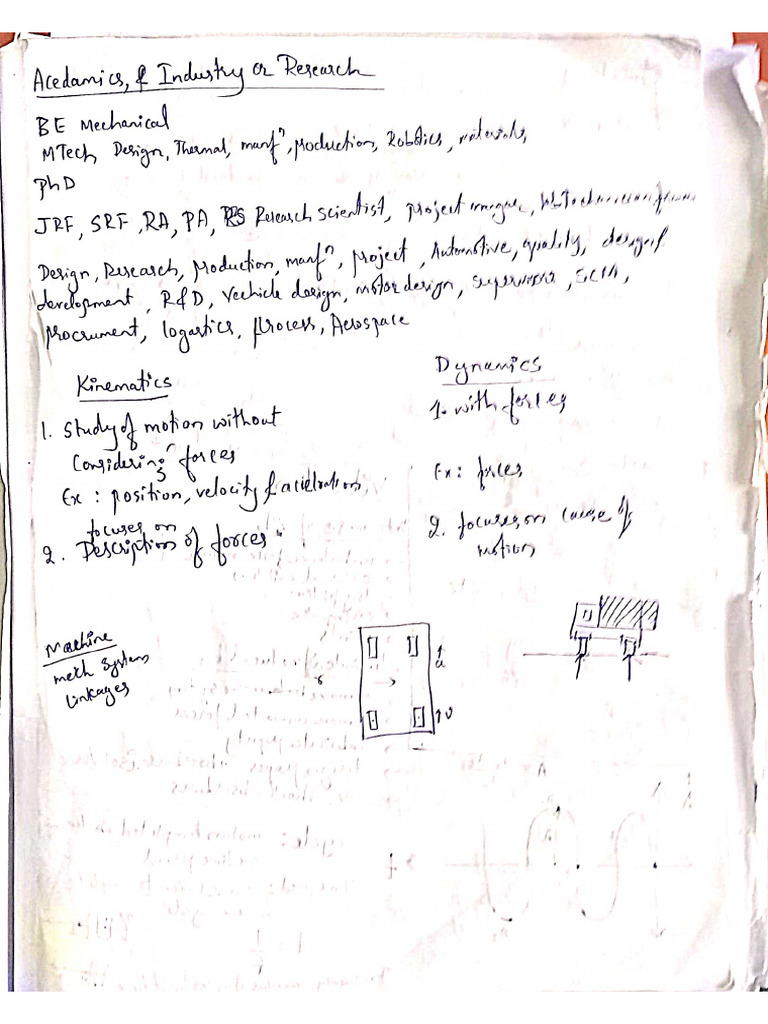 Acedamics, & Industry or Research
BE Mechanical
MTech Design, Thermal, manfⁿ, production, Robotics, materials,
PhD
JRF, SRF, RA, PA, Research scientist, project
Design, Research, production, manfⁿ, project, Automotive, quality, design &
development, R&D, Vechicle design, motor design, supervisor, SCM,
procrument, logastics, process, Aerospace
Kinematics
1. Study of motion without
Considering forces
Ex: position, velocity &
focuses on
2. Description of forces
Dynamics
1. with forces
Ex: forces
2. focuses on cause of
motion
Machine
mech system
linkages
u
v